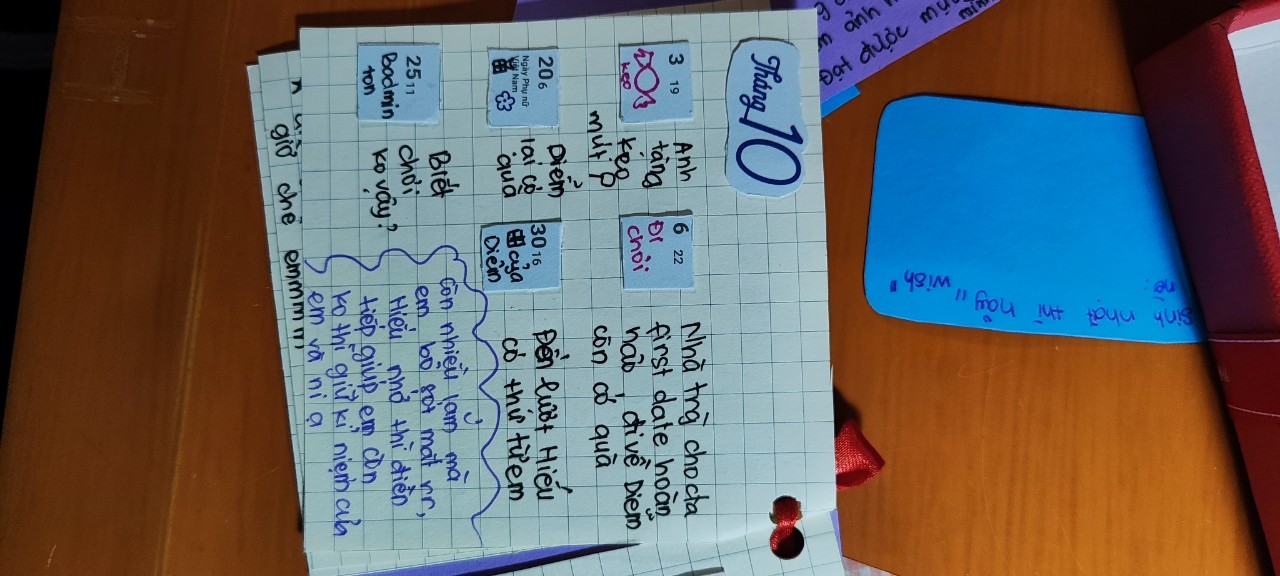 Sinh nhật thì hãy "wish"
nè:
Đạt được
Tháng 10
3 19
Kẹo
Anh
tặng
kẹo
mút ?
6 22
Đi
chơi
Nhà trg cho cta
first date hoàn
hảo, đi về Diễm
còn có quà
20 6
Ngày Phụ nữ
Việt Nam
Diễm
lại có
quà
30 16
của
Diễm
Đến lượt Hiếu
có thư từ em
25 11
Badmin
ton
Biết
chơi
ko vậy?
Còn nhiều lắm mà
em bỏ sót mất rr,
Hiếu nhớ thì điền
tiếp giúp em còn
ko thì giữ kỉ niệm của
em và ni ạ
giờ chê emmmm